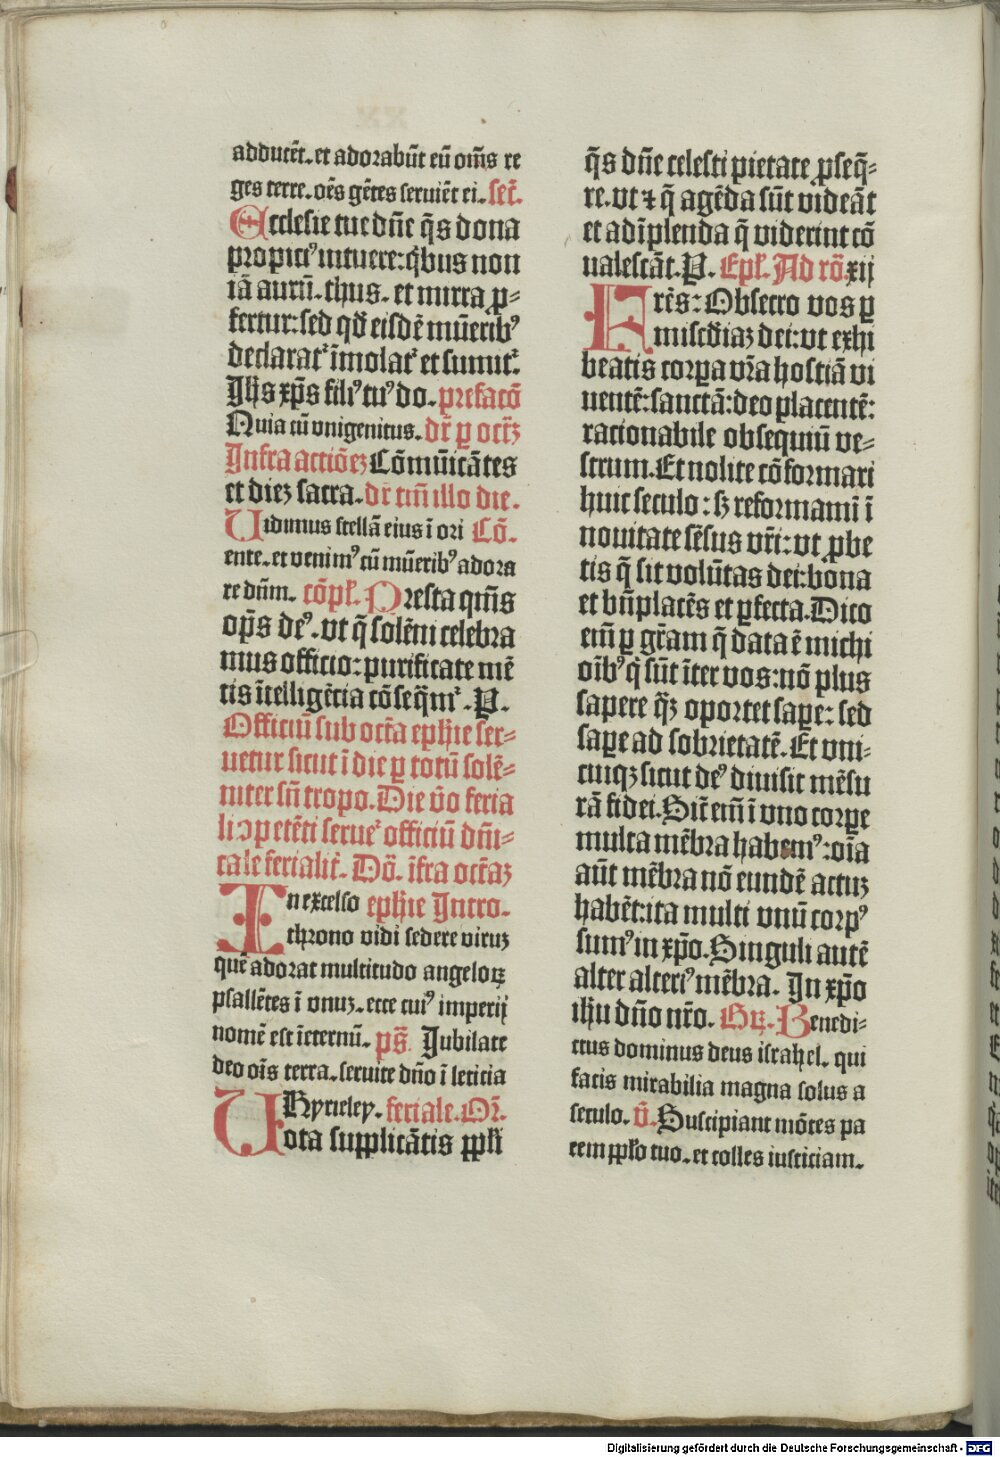 adducēt. et adorabūt eū om̄s re
ges terre. oēs gētes seruiēt ei. sec̄.
Ecclesie tue dn̄e q̄s dona
propici⁹ intuere: qͥbus non
iā aurū. thus. et mirra ꝓ-
fertur: sed qd̄ eisdē mūerib⁹
declarat᷑ īmolat᷑ et sumit᷑.
Jh̄s xp̄s fili⁹ tu⁹ do. prefacō
Quia cū vnigenitus. dr̄ ꝑ oct̄ꝫ
Infra actiōeꝫ Cōmūicātes
et dieꝫ sacra. dr̄ tm̄ illo die.
Uidimus stellā eius ī ori Cō.
ente. et venim⁹ cū mūerib⁹ adora
re dn̄m. cōpl̄. Presta qm̄s
op̄s de⁹. vt q̄ solēni celebra
mus officio: purificate mē
tis ītelligētia cōseq̄m᷑. P.
Officiū sub octa eph̄ie ser-
uetur sicut ī die ꝑ totū solē-
niter sn̄ tropo. Die v̄o feria
li ↄpetēti serue᷑ officiū dn̄i-
cale ferialit̄. Dō. īfra octaꝫ
In excelso eph̄ie Intro.
throno vidi sedere viruꝫ
quē adorat multitudo angeloꝝ
psallētes ī vnuꝫ. ecce cui⁹ imperij
nomē est īeternū. ps̄. Jubilate
deo oīs terra. seruite dn̄o ī leticia
Kyrieley. feriale. Or̄.
Uota supplicātis ppl̄i
q̄s dn̄e celesti pietate ꝓseq̄-
re. vt ⁊ q̄ agēda sūt videāt
et adīplenda q̄ viderint cō
ualescāt. P. Epl̄. Ad rō. xij
Frēs: Obsecro vos ꝑ
misc̄diaꝫ dei: vt exhi
beatis corpa vr̄a hostiā vi
uentē: sanctā: deo placentē:
racionabile obsequiū ve-
strum. Et nolite cōformari
huic seculo: sꝫ reformami ī
nouitate sēsus vr̄i: vt ꝓbe
tis q̄ sit volūtas dei: bona
et bn̄placēs et ꝑfecta. Dico
em̄ ꝑ gr̄am q̄ data ē michi
oīb⁹ qͥ sūt īter vos: nō plus
sapere q̄ꝫ oportet saꝑe: sed
saꝑe ad sobrietatē. Et vni-
cuiqꝫ sicut de⁹ diuisit mēsu
rā fidei. Sic̄ em̄ ī vno corꝑe
multa mēbra habem⁹: oīa
aūt mēbra nō eundē actuꝫ
habēt: ita multi vnū corp⁹
sum⁹ in xp̄o. Singuli autē
alter alteri⁹ mēbra. In xp̄o
ih̄u dn̄o nr̄o. Gꝝ. Benedi-
ctus dominus deus israhel. qui
facis mirabilia magna solus a
seculo. v̄. Suscipiant mōtes pa
cem ppl̄o tuo. et colles iusticiam.
Digitalisierung gefördert durch die Deutsche Forschungsgemeinschaft - DFG